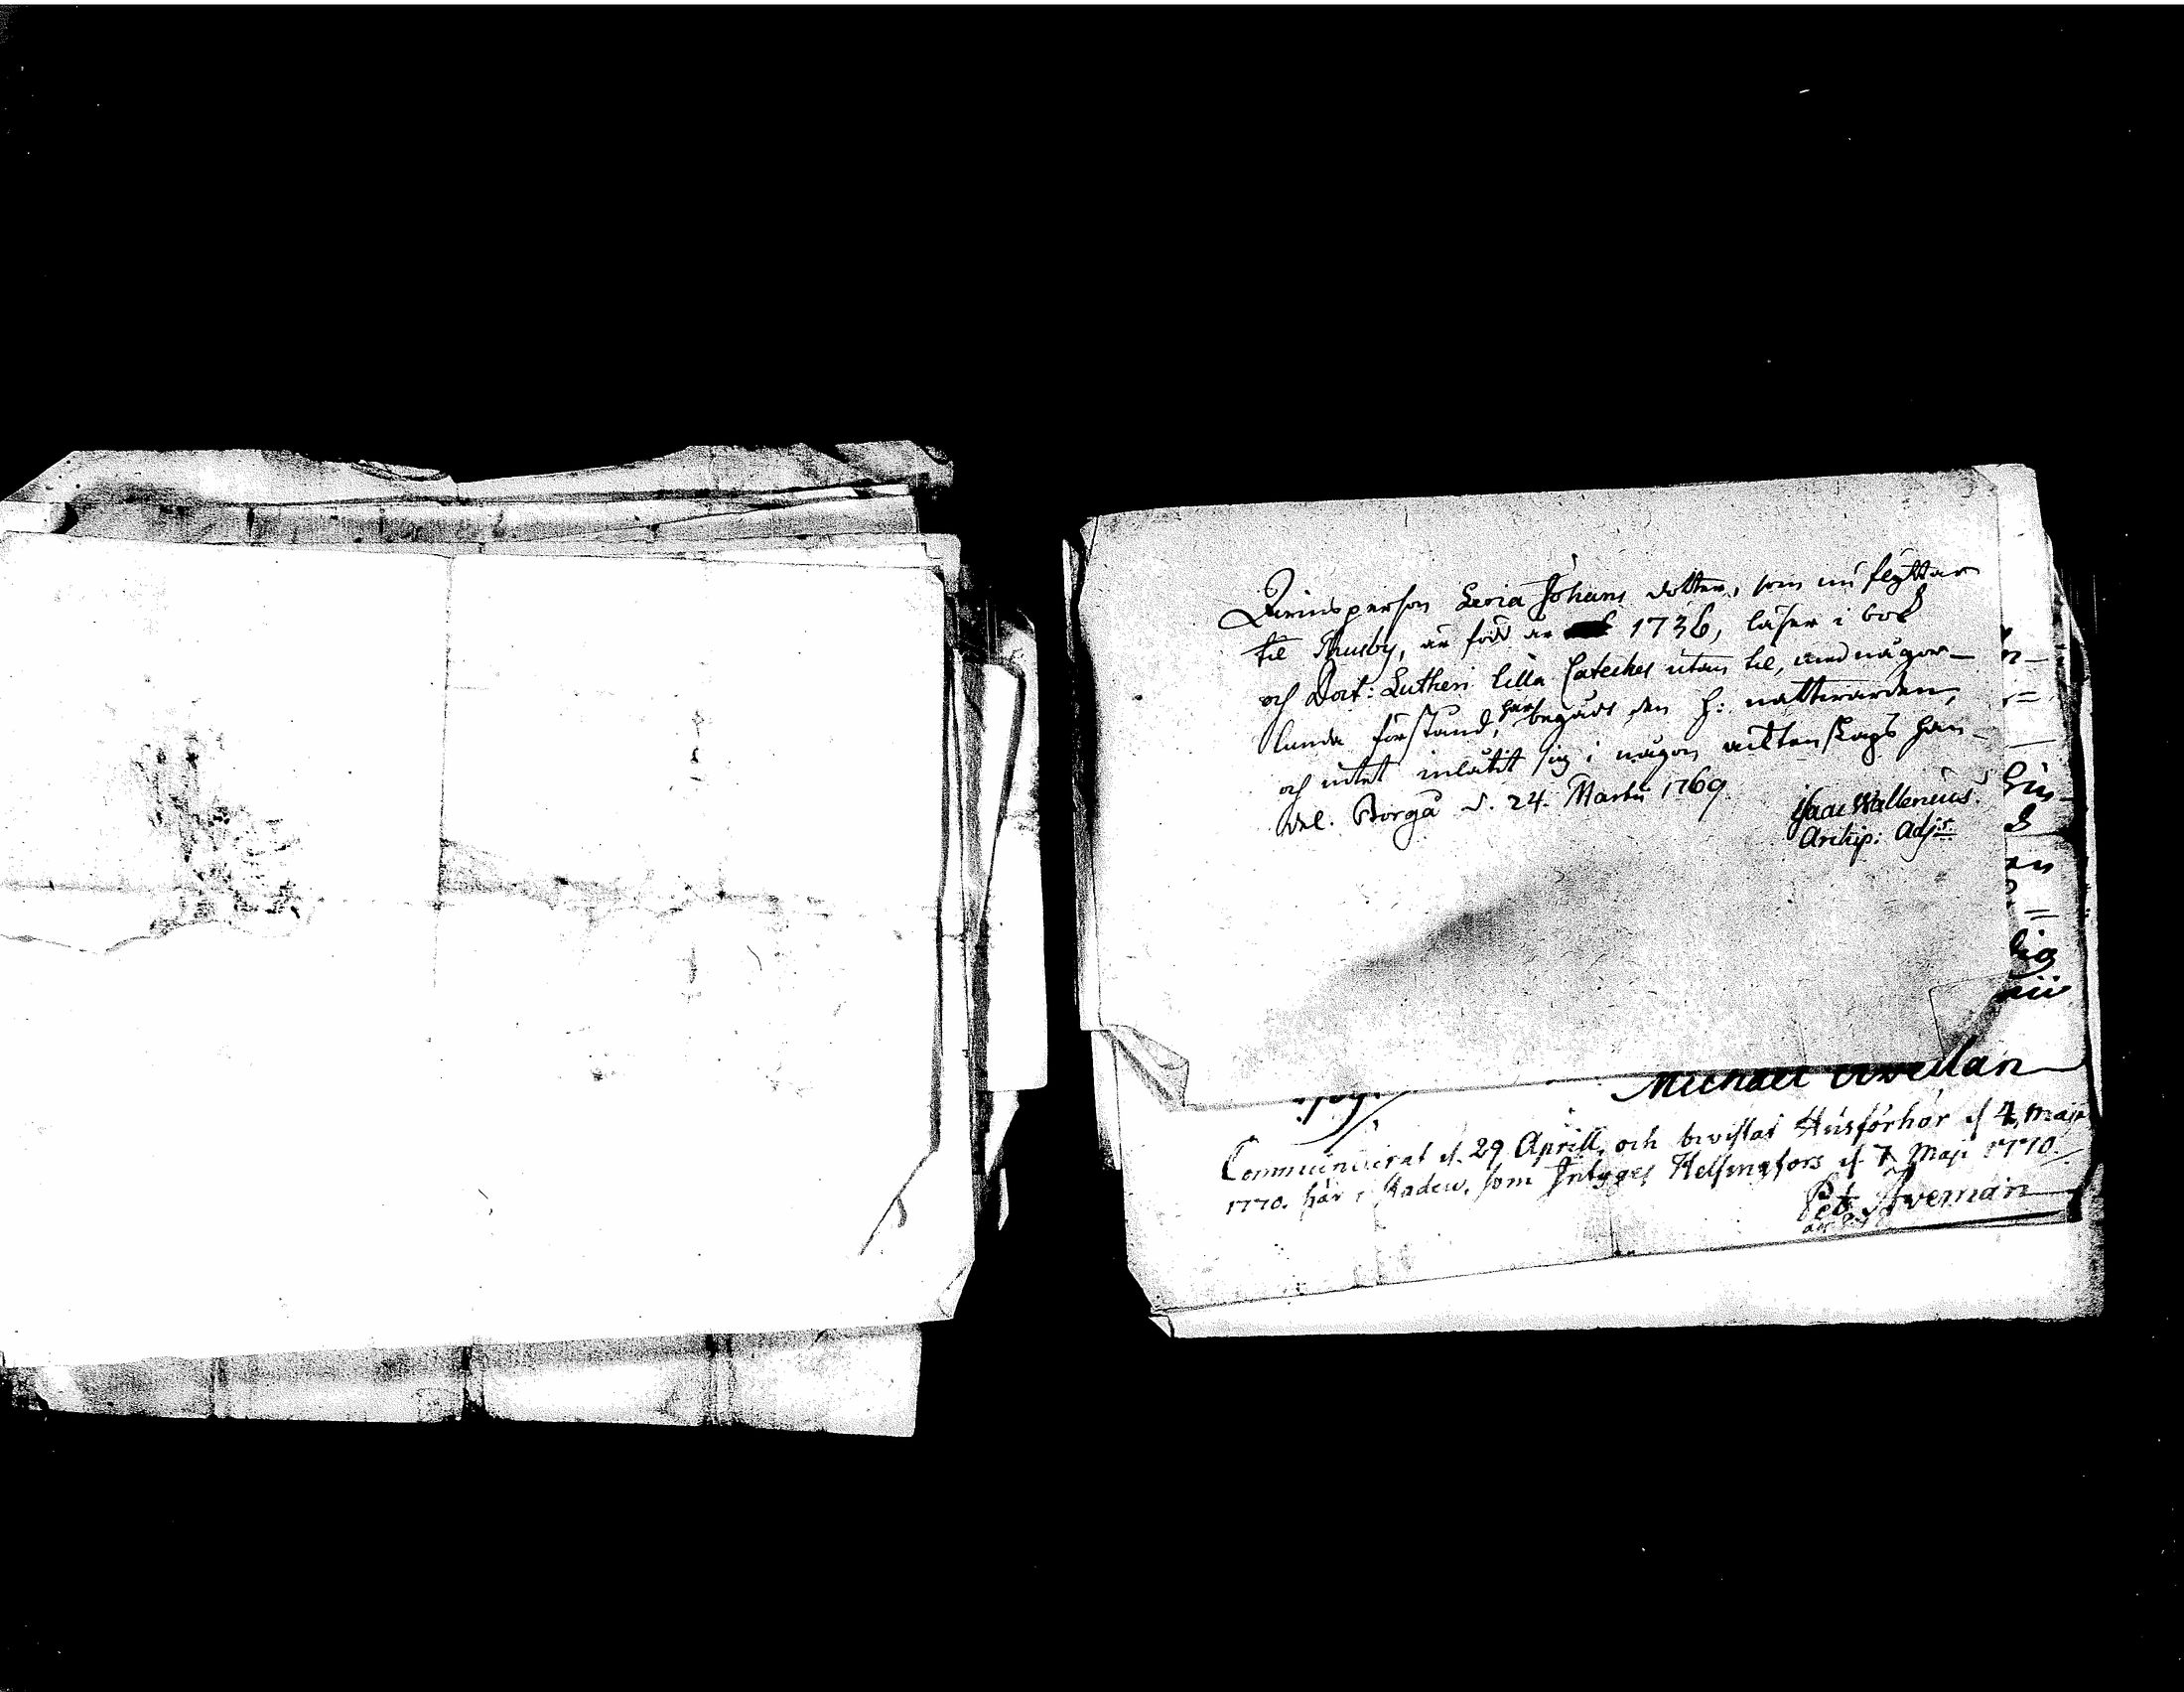 Qvinsperson Lovia Johans dotter, som nu flyttar
til Thusby, är född år 1736, läser i bok
och Doct: Lutheri lilla Cateches utan til, med någor-
lunda förstånd, har begått den H: nattvarden,
och intet inlåtit sig i någon ächtenskaps han-
del. Borgå d. 24. Martii 1769.
Isaac Wallenius.
Archip: Adj:
Hin-
en
lig
Michael
Communicerat d. 29 Aprill, och bevistat Husförhör d 4 Maji
1770. här i Staden, som Intygas Helsingfors d 7 Maji 1770.
Pet.